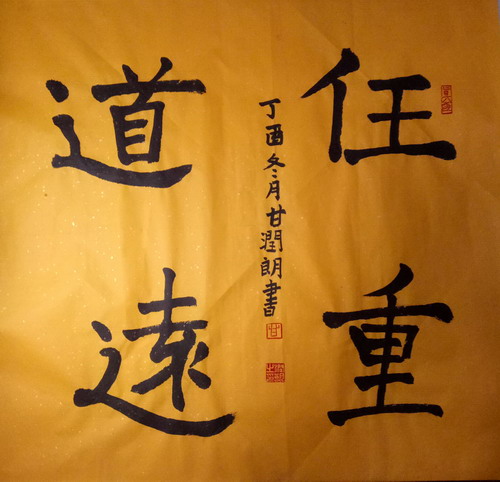 任重
道遠
丁酉冬月甘潤朗書
甘